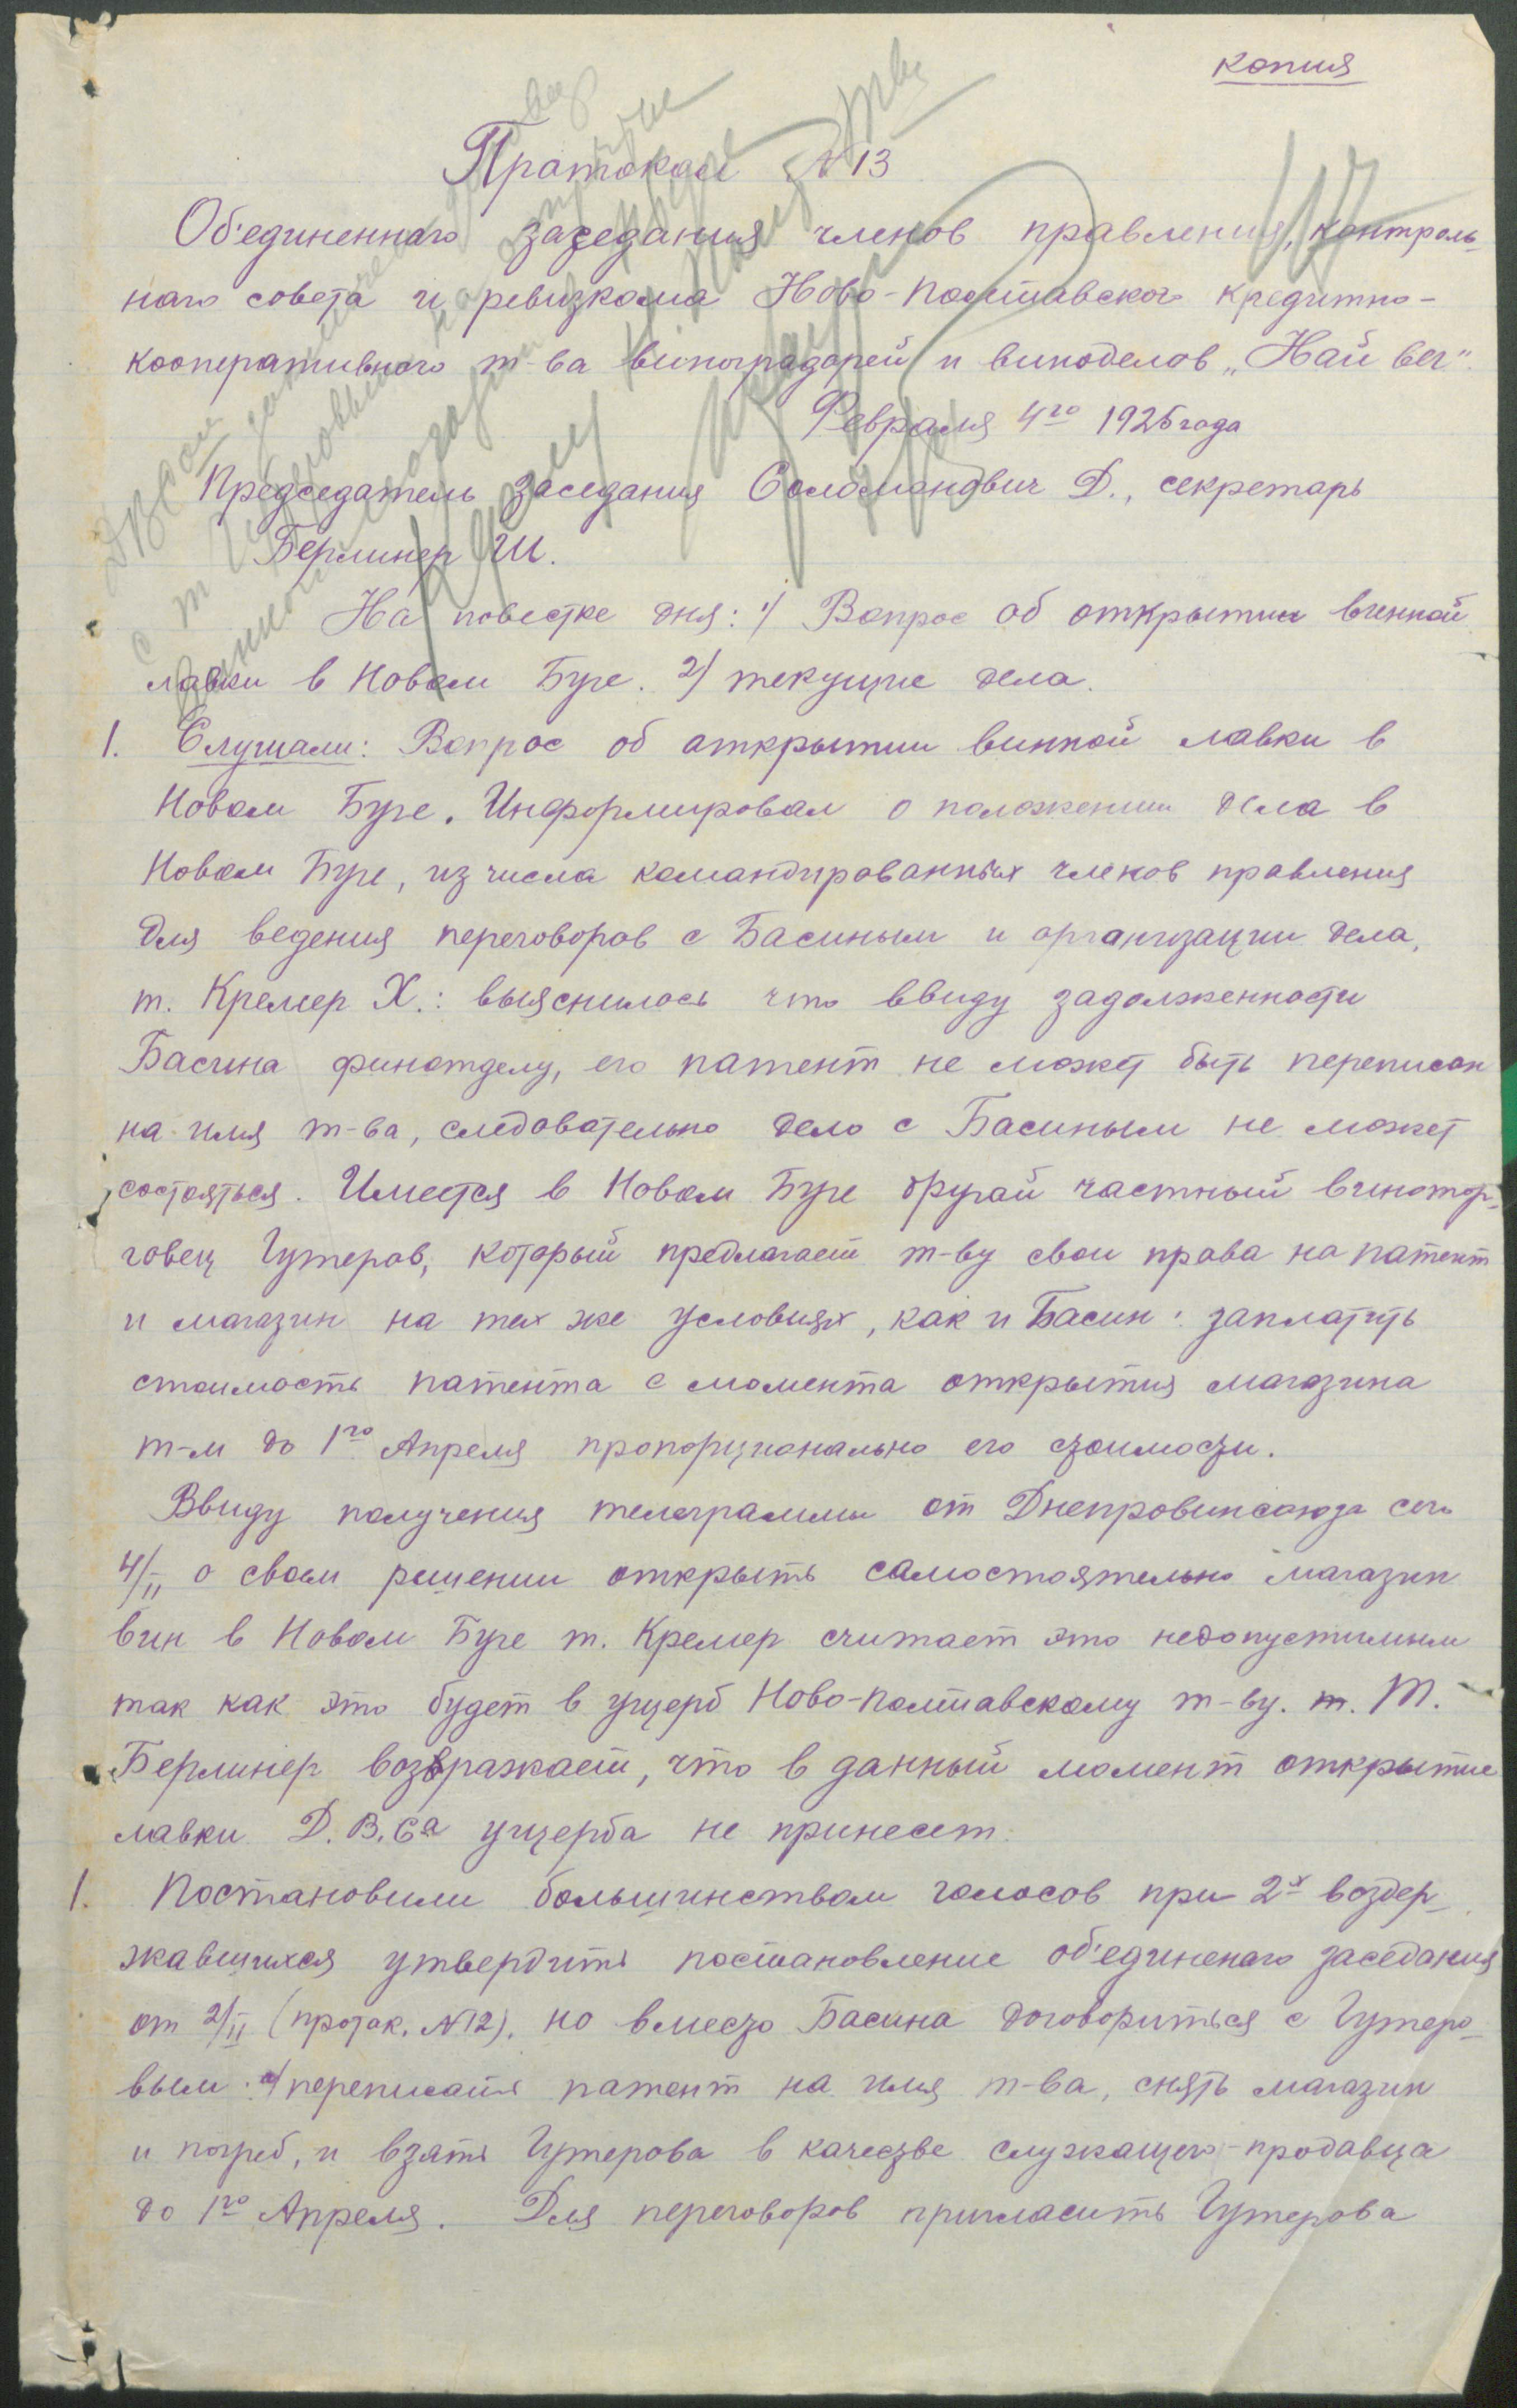 копия
Пратокол №13
Об'единеннаго заседания членов правления, контроль-
наго совета и ревизкома Ново-Полтавскаго кредитно-
кооперативного т-ва виноградарей и виноделов „Най вег".
Февраля 4го 1926 года
Председатель заседания Соломонович Д., секретарь
Берлинер Ш.
На повестке дня: 1) Вопрос об открытии винной
лавки в Новом Буге. 2) текущие дела.
1. Слушали: Вопрос об открытии винной лавки в
Новом Буге. Информировал о положении дела в
Новом Буге, из числа командированных членов правления
для ведения переговоров с Басиным и организации дела,
т. Кремер Х.: выяснилось что ввиду задолженности
Басина финотделу, его патент не может быть переписан
на имя т-ва, следовательно дело с Басиным не может
состояться. Имеется в Новом Буге другой частный винотор-
говец Гутеров, который предлагает т-ву свои права на патент
и магазин на тех же условиях, как и Басин: заплатить
стоимость патента с момента открытия магазина
т-м до 1го Апреля пропорционально его стоимости.
Ввиду получения телеграммы от Днепровинсоюза сего
4/II о своем решении открыть самостоятельно магазин
вин в Новом Буге т. Кремер считает это недопустимым
так как это будет в ущерб Ново-Полтавскому т-ву. т. М.
Берлинер возвражает, что в данный момент открытие
лавки Д.В.Са ущерба не принесет.
1. Постановили большинством голосов при 2х воздер-
жавшихся утвердить постановление об'единенаго заседания
от 2/II (проток. №12), но вместо Басина договориться с Гутеро-
вым: а) переписать патент на имя т-ва, снять магазин
и погреб, и взять Гутерова в качестве служащего-продавца
до 1го Апреля. Для переговоров пригласить Гутерова